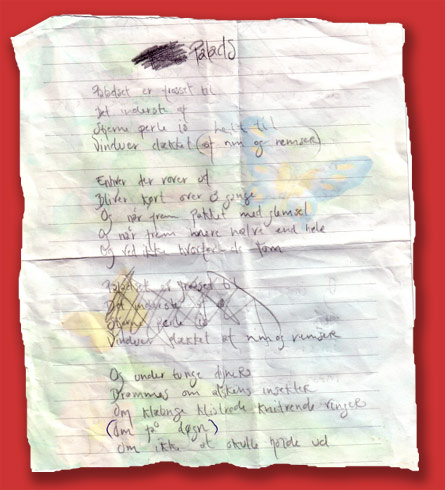 Palads
Paladset er frosset til
Det inderste af
Stjerne perle is helt til
Vinduer dækket (af rim og remser)
Enhver der rører ad
Bliver kørt over 3 gange
Og når frem pakket med glemsel
Og når frem mere halve end hele
Og ved ikke hvorfor de kom
Paladset er frosset til
Det inderste af
Stjerne perle is
Vinduer dækket af rim og remser
Og under tunge dyner
Drømmes om alskens insekter
Om klæbrige klistrede knitrende vinger
(Om på døgn)
Om ikke at skulle holde ud